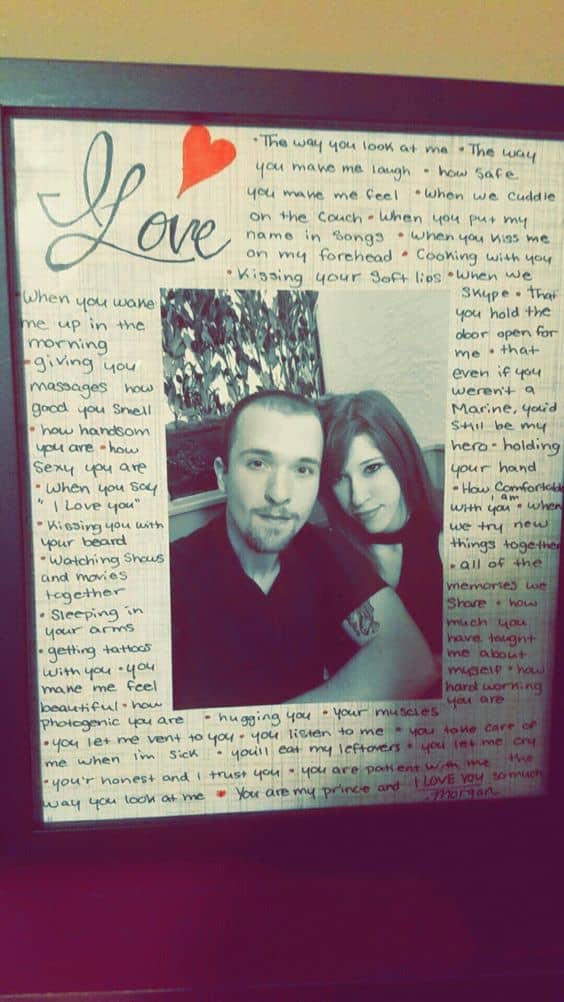 I Love
• The way you look at me • The way
you make me laugh • how safe
you make me feel • when we cuddle
on the couch • when you put my
name in songs • when you kiss me
on my forehead • Cooking with you
• Kissing your soft lips • when we
Skype • that
you hold the
door open for
me • that
even if you
weren't a
Marine, you'd
still be my
hero • holding
your hand
• How comfortable
I am
with you • when
we try new
things together
• all of the
memories we
share • how
much you
have taught
me about
myself • how
hard working
you are
• when you wake
me up in the
morning
• giving you
massages how
good you smell
• how handsom
you are • how
sexy you are
• when you say
"I love you"
• Kissing you with
your beard
• Watching shows
and movies
together
• Sleeping in
your arms
• getting tattoos
with you • you
make me feel
beautiful • how
photogenic you are • hugging you • your muscles
• you let me vent to you • you listen to me • you take care of
me when i'm sick • you'll eat my leftovers • you let me cry
• you'r honest and I trust you • you are patient with me • the
way you look at me • You are my prince and I LOVE YOU so much
- Morgan